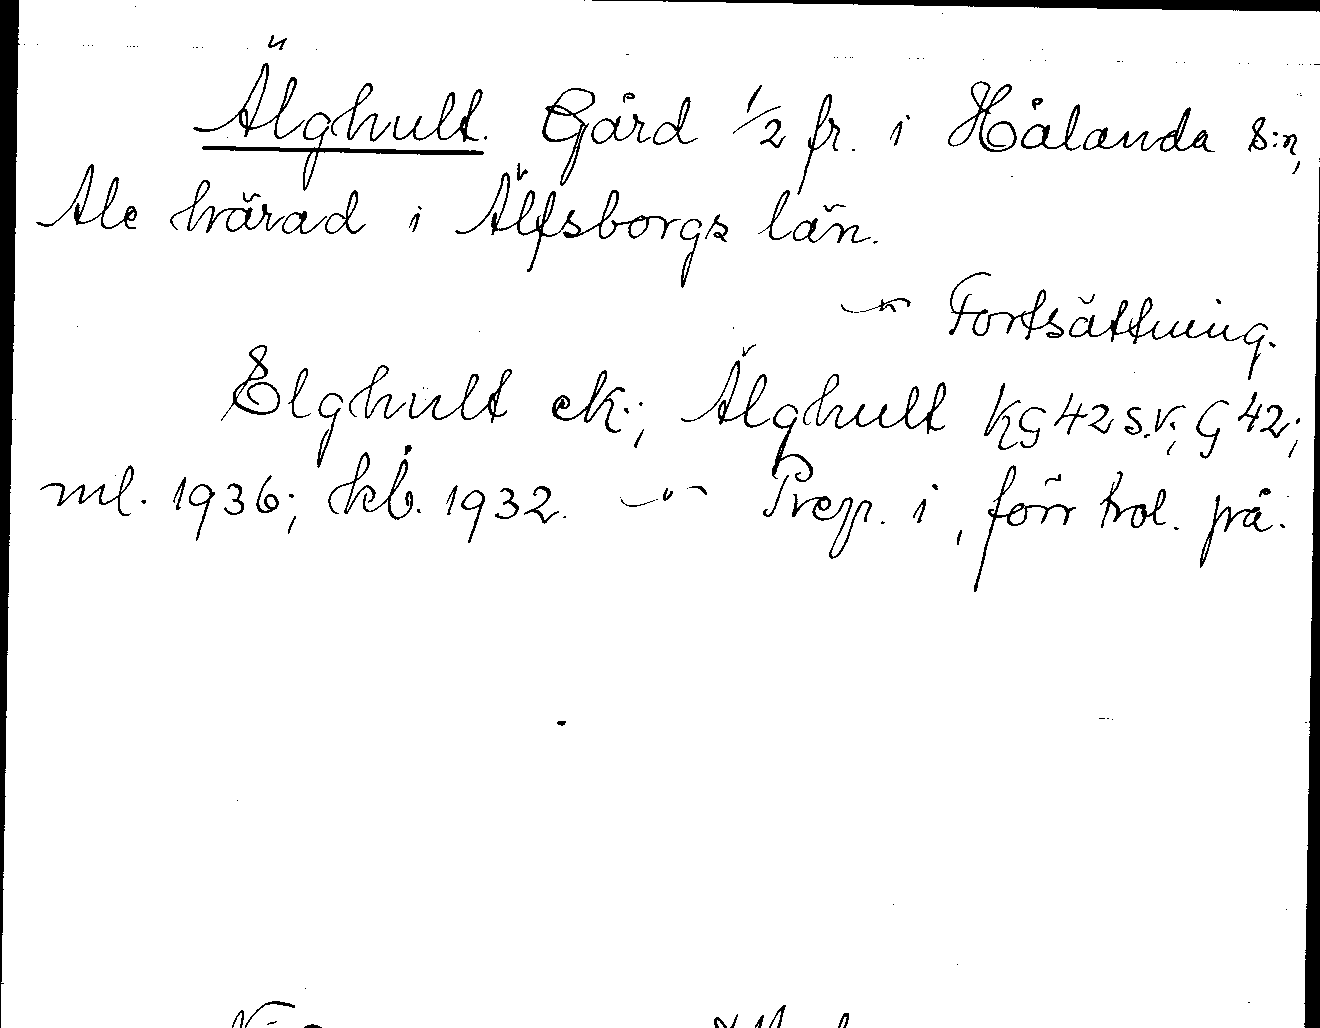 Älghult. Gård 1/2 fr. i Hålanda s:n,
Ale härad i Älfsborgs län.
— " — Fortsättning.
Elghult ek.; Älghult KG 42 s.v.; G 42;
ml. 1936; kb. 1932. — " — Prep. i, förr trol. på.